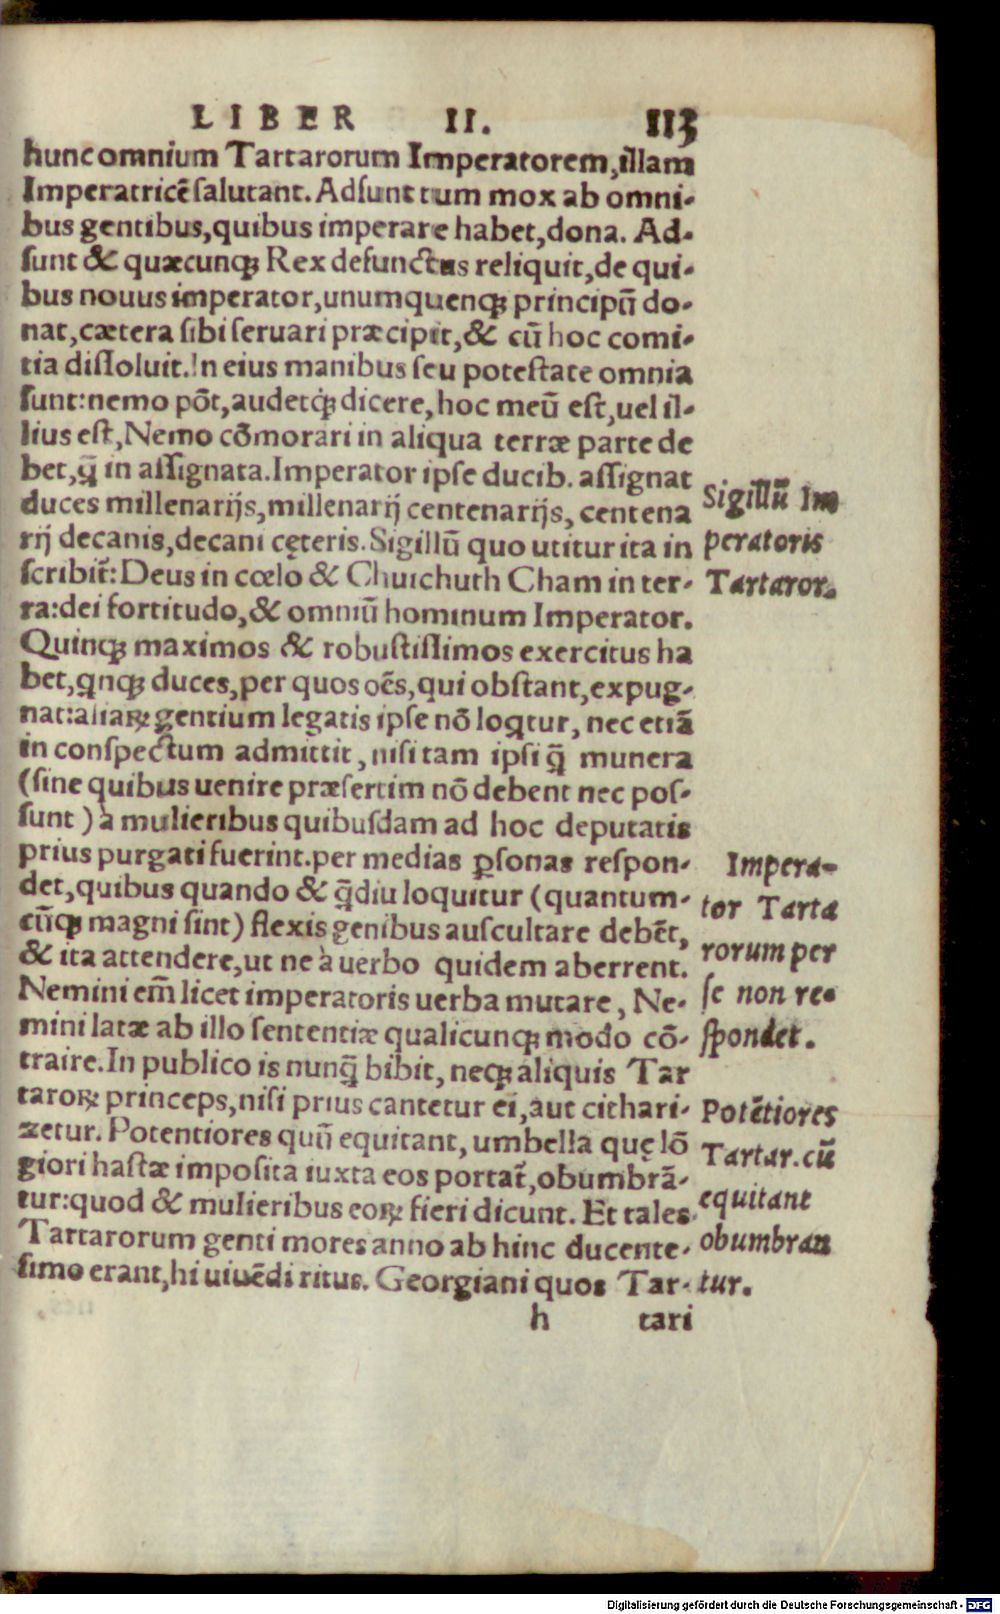 LIBER II. 113
hunc omnium Tartarorum Imperatorem, illam
Imperatricē salutant. Adsunt tum mox ab omni-
bus gentibus, quibus imperare habet, dona. Ad-
sunt & quæcunqꝫ Rex defunctus reliquit, de qui-
bus nouus imperator, unumquenqꝫ principū do-
nat, cætera sibi seruari præcipit, & cū hoc comi-
tia dissoluit. In eius manibus seu potestate omnia
sunt: nemo pōt, audetqꝫ dicere, hoc meū est, uel il-
lius est, Nemo cōmorari in aliqua terræ parte de
bet, q̄ in assignata. Imperator ipse ducib. assignat
duces millenarijs, millenarij centenarijs, centena
rij decanis, decani cęteris. Sigillū quo utitur ita in
scribit̄: Deus in cœlo & Chuichuth Cham in ter-
ra: dei fortitudo, & omniū hominum Imperator.
Quinqꝫ maximos & robustissimos exercitus ha
bet, qnqꝫ duces, per quos oēs, qui obstant, expug-
nat: aliaꝝ gentium legatis ipse nō loqtur, nec etiā
in conspectum admittit, nisi tam ipsi q̄ munera
(sine quibus uenire præsertim nō debent nec pos-
sunt) à mulieribus quibusdam ad hoc deputatis
prius purgati fuerint. per medias ꝑsonas respon-
det, quibus quando & q̄diu loquitur (quantum-
cūqꝫ magni sint) flexis genibus auscultare debēt,
& ita attendere, ut ne à uerbo quidem aberrent.
Nemini em̄ licet imperatoris uerba mutare, Ne-
mini latæ ab illo sententiæ qualicunqꝫ modo cō-
traire. In publico is nunq̄ bibit, neqꝫ aliquis Tar
taroꝝ princeps, nisi prius cantetur ei, aut cithari-
zetur. Potentiores quū equitant, umbella quę lō
giori hastæ imposita iuxta eos portat̄, obumbrā-
tur: quod & mulieribus eoꝝ fieri dicunt. Et tales
Tartarorum genti mores anno ab hinc ducente-
simo erant, hi uiuēdi ritus. Georgiani quos Tar-
h tari
Sigillū Im
peratoris
Tartaror.
Impera-
tor Tarta
rorum per
se non re-
spondet.
Potētiores
Tartar. cū
equitant
obumbran
tur.
Digitalisierung gefördert durch die Deutsche Forschungsgemeinschaft - DFG